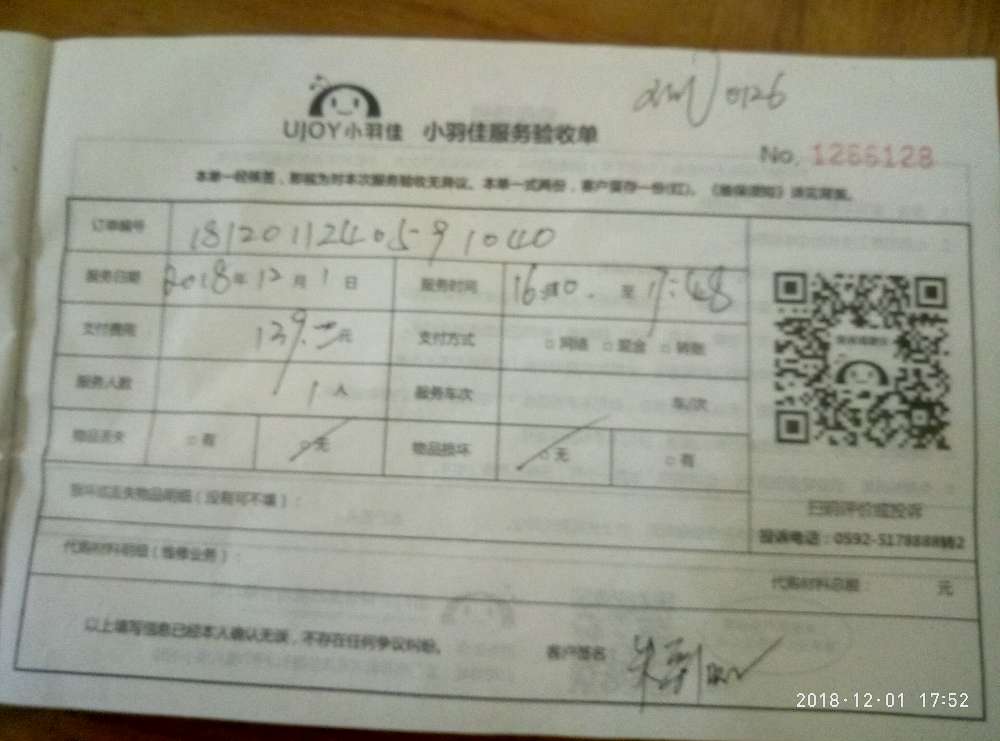 0126
UJOY小羽佳 小羽佳服务验收单
No. 1266128
本单一经签署,即视为对本次服务验收无异议。本单一式两份,客户留存一份(红)。
订单编号 181201124059 1040
服务日期 2018年12月1日 服务时间 至17:48
支付费用 元 支付方式 □网络 □现金 □转账
服务人数 1人 服务车次 车/次
物品丢失 □有 □无 物品损坏 □无 □有
损坏或丢失物品明细(没有可不填):
扫码评价或投诉
投诉电话:0592-5178888转2
代购材料明细(维修业务):
代购材料总额: 元
以上填写信息已经本人确认无误,不存在任何争议纠纷。 客户签名:
2018-12-01 17:52